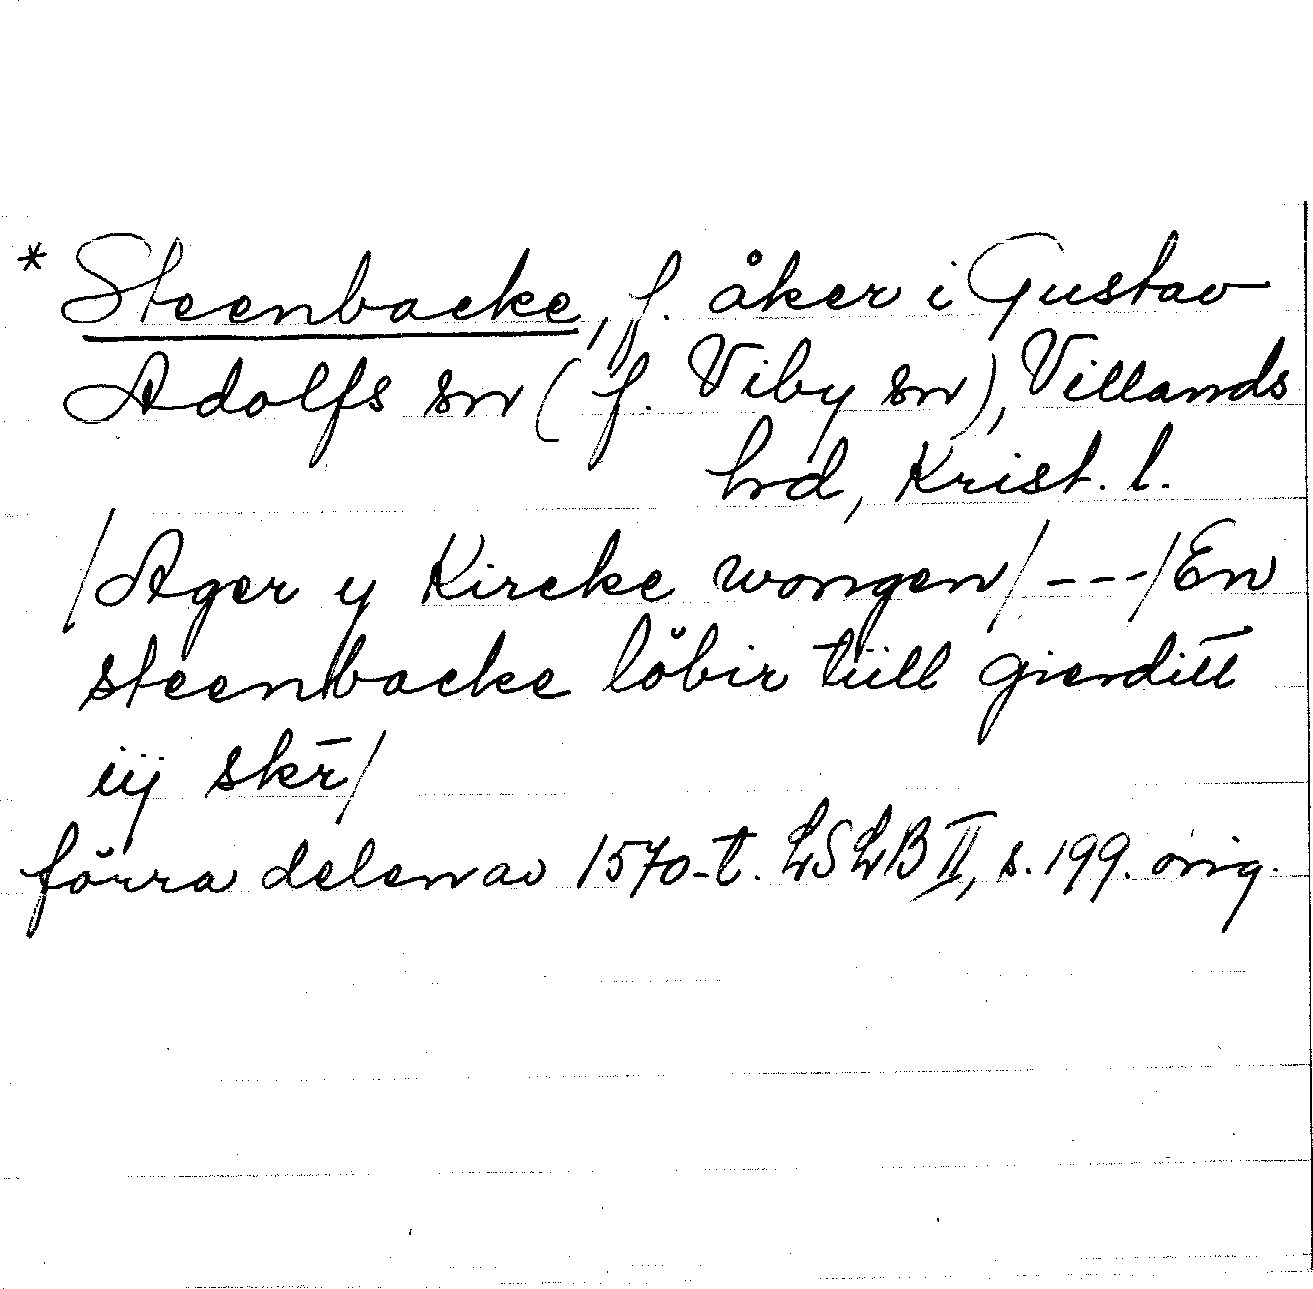 * Steenbacke, f. åker i Gustav
Adolfs sn (f. Viby sn), Villands
hrd, Krist. l.
/Ager y Kircke wongen/---/En
steenbacke löbir tüll gierditt
iij skr̄/
förra delen av 1570-t. LSLB II, s. 199. orig.